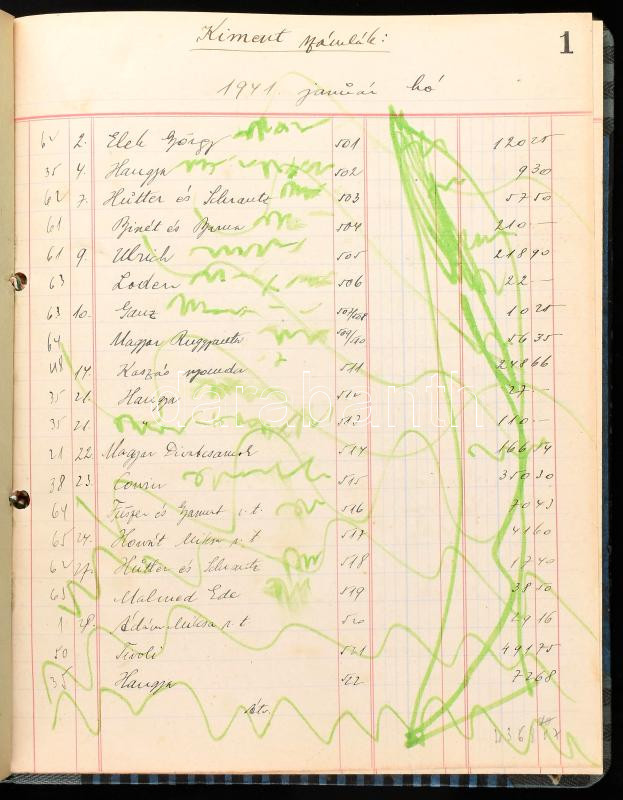 Kiment számlák:
1
1941. január hó
62 2. Elek György 501 120 25
35 4. Hangya 502 9 30
62 7. Hütter és Schrantz 503 57 50
61 504 210 —
61 9. Ulrich 505 218 90
63 Loden 506 22 —
63 10. Ganz 507/508 10 25
64 Magyar Ruggyanta 509/10 56 35
14. Kaszás nyomda 511 248 66
35 21. Hangya 512 27 —
35 21. " 513 110 —
21 22. Magyar Divatcsarnok 514 166 54
38 23. Corvin 515 350 30
64 516 70 43
65 24. 517 41 60
62 27. Hütter és Schrantz 518 17 40
65 Malmed Ede 519 38 50
1 28. Ádám Miksa r. t. 520 29 16
50 Tivoli 521 491 75
35 Hangya 522 72 68
Átv.
darabanth